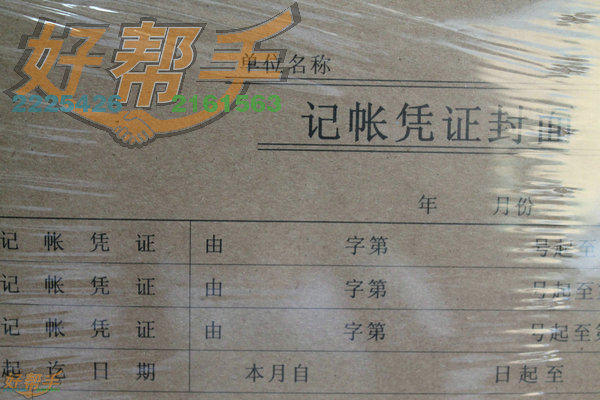 好帮手
2325426 2161563
单位名称
记帐凭证封面
年 月份
记帐凭证 由 字第 号起至
记帐凭证 由 字第 号起至第
记帐凭证 由 字第 号起至第
起讫日期 本月自 日起至
好帮手